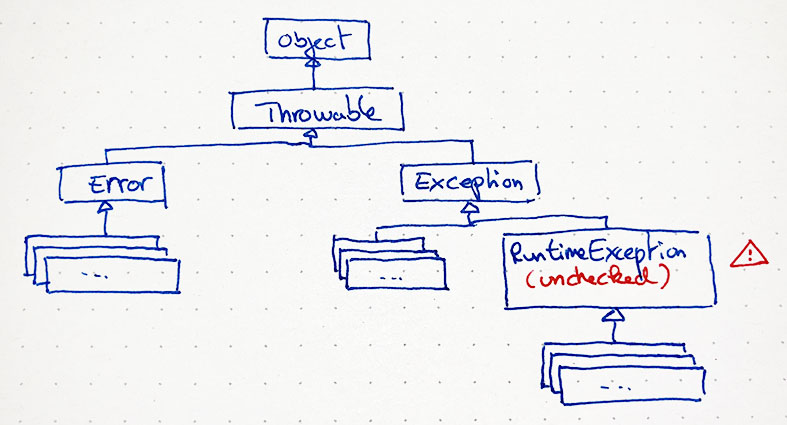 Object
Throwable
Error
Exception
...
...
RuntimeException
(unchecked)
!
...